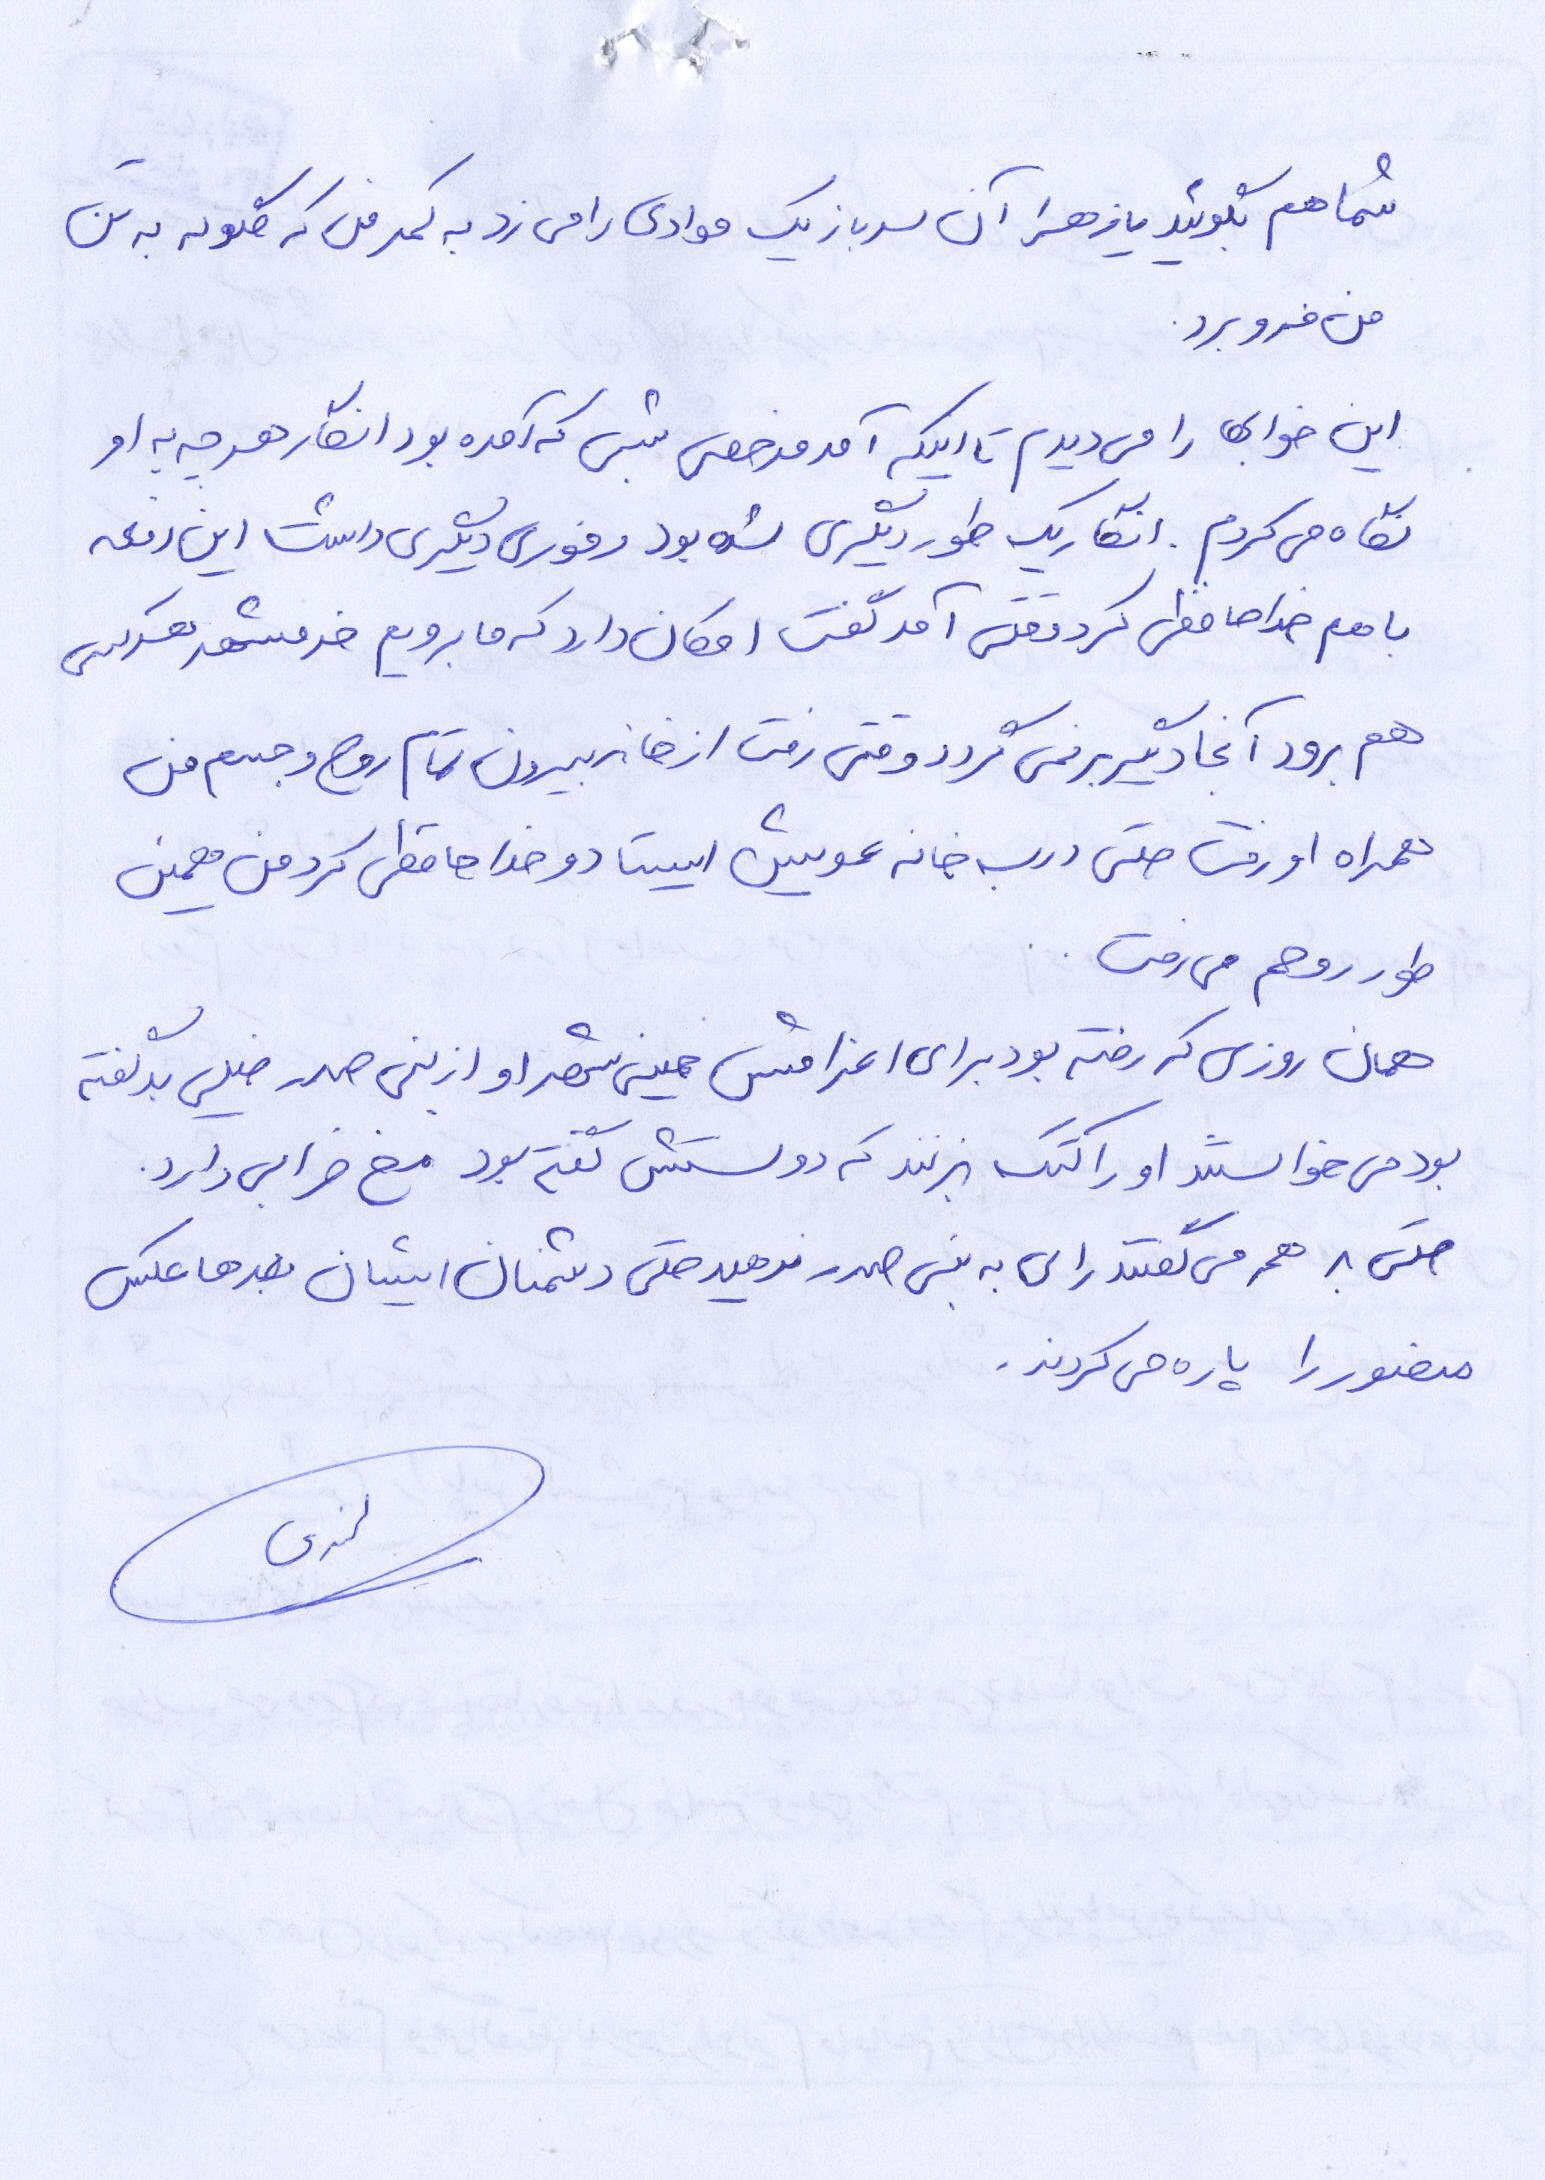 شما هم بگوئید یا زهرا آن سرباز یک موادی را می زد به کمر من که گلوله به تن
من فرو برد.
این خوابها را می دیدم تا اینکه آمد مرخصی شبی که آمده بود انگار هر چه به او
نگاه می کردم. انگار یک طور دیگری شده بود و فوری دیگری داشت این دفعه
با هم خداحافظی کرد وقتی آمد گفت امکان دارد که ما برویم خرمشهر هر کسی
هم برود آنجا دیگر برنمی گردد وقتی رفت از خانه بیرون تمام روح و جسم من
همراه او رفت حتی درب خانه عمویش ایستاد و خداحافظی کرد من همین
طور روحم می رفت.
همان روزی که رفته بود برای اعزامش خمینی شهر او از بنی صدر خیلی بد گفته
بود می خواستند او را کتک بزنند که دوستش گفته بود مخ خرابی دارد.
حتی به همه می گفتند رای به بنی صدر ندهید حتی دشمنان ایشان بعدها عکس
منصور را پاره می کردند.